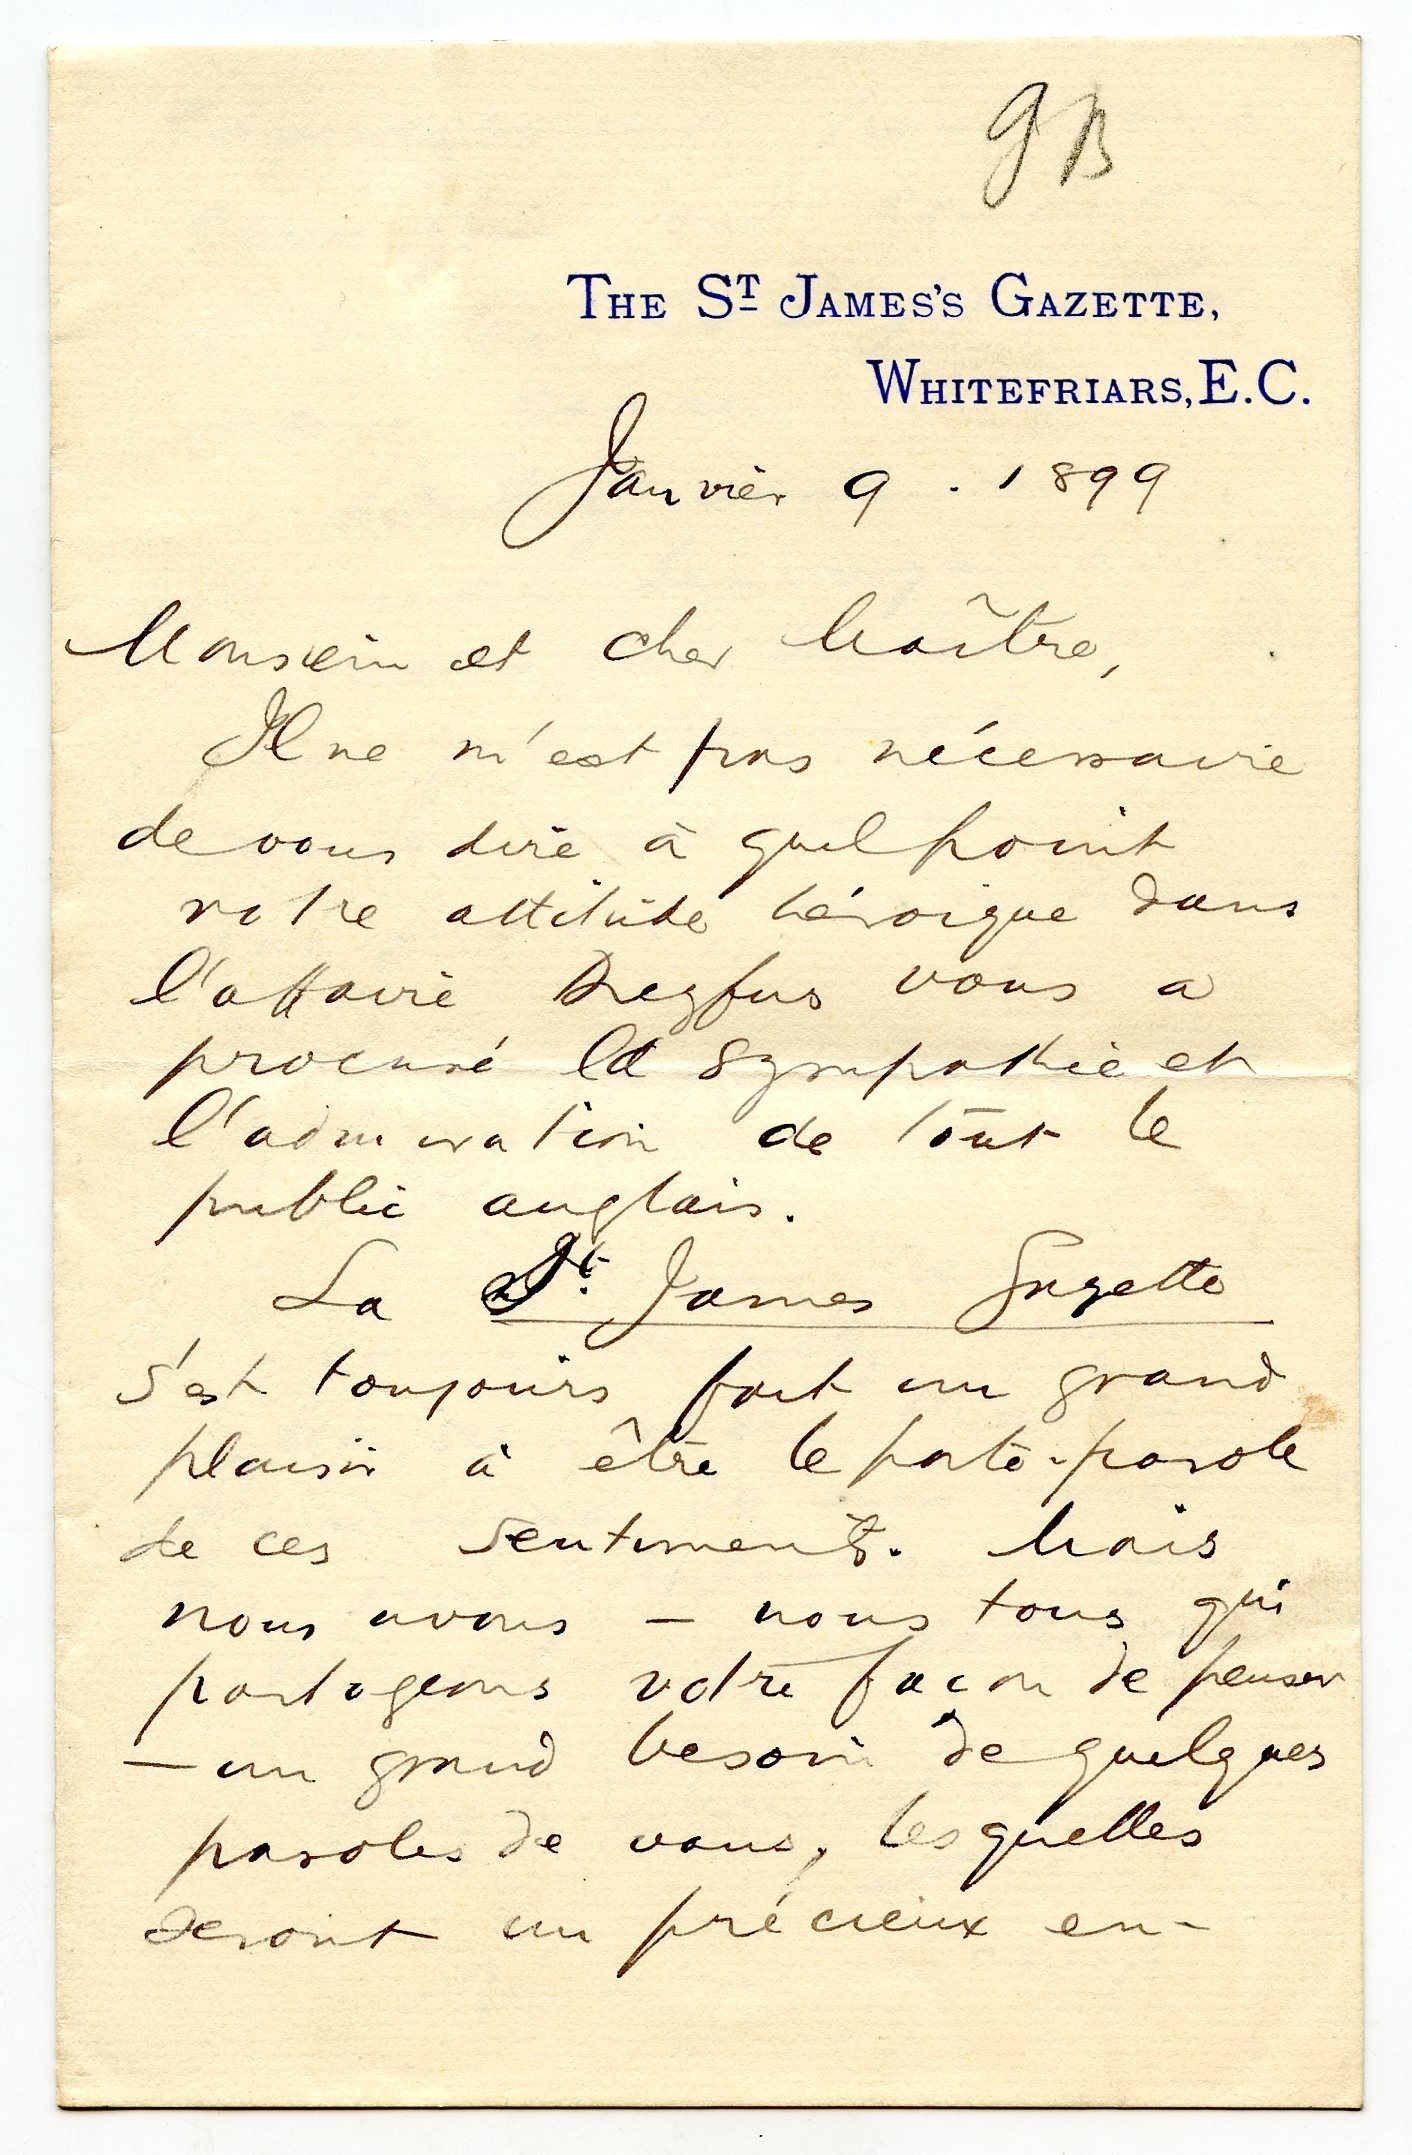 GB
THE ST JAMES'S GAZETTE,
WHITEFRIARS, E.C.
Janvier 9. 1899
Monsieur et cher Maître,
Il ne m'est pas nécessaire
de vous dire à quel point
votre attitude héroique dans
l'affaire Dreyfus vous a
procuré la sympathie et
l'admiration de tout le
public anglais.
La St. James Gazette
s'est toujours fait un grand
plaisir à être le porte-parole
de ces sentiments. Mais
nous avons — nous tous qui
partageons votre façon de penser
— un grand besoin de quelques
paroles de vous, lesquelles
seront un précieux en-